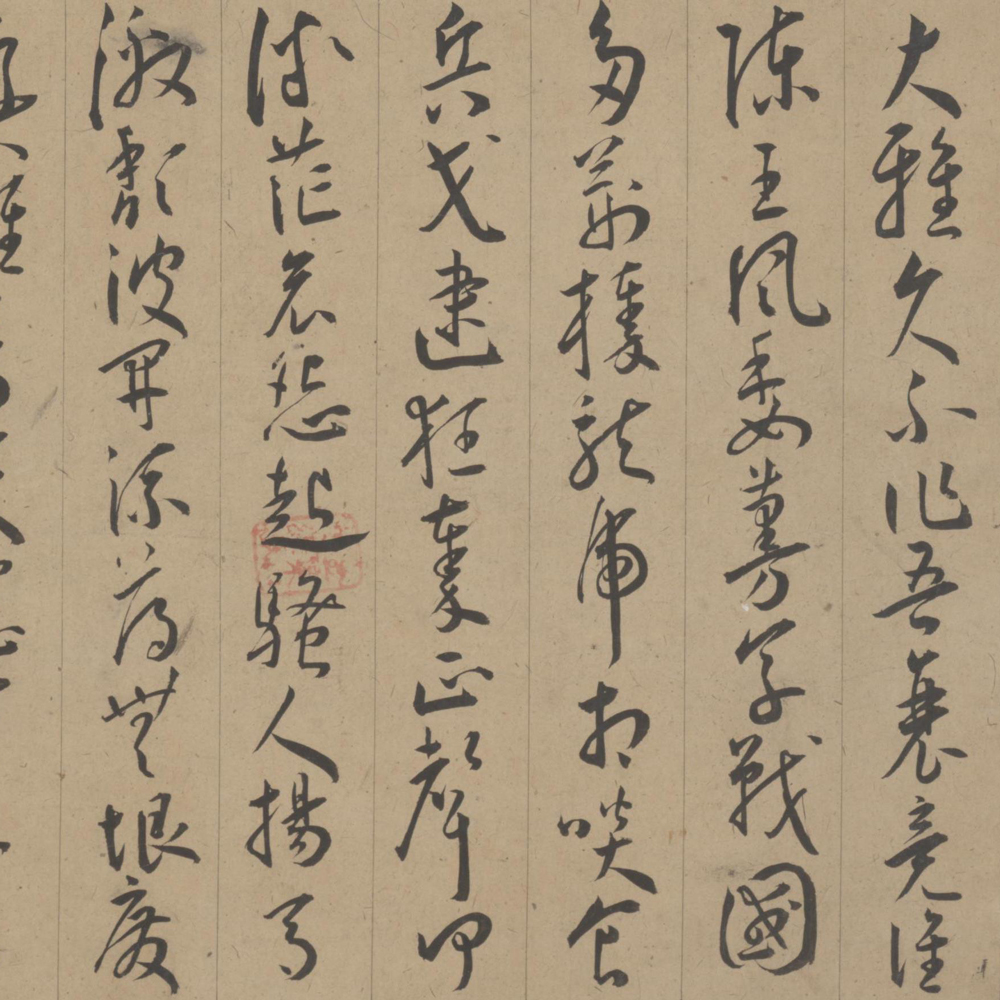 大雅久不作吾衰竟誰
陳王風委蔓草戰國
多荊榛龍虎相啖食
兵戈逮狂秦正聲何
微茫哀怨起騷人揚馬
激頹波開流蕩無垠廢